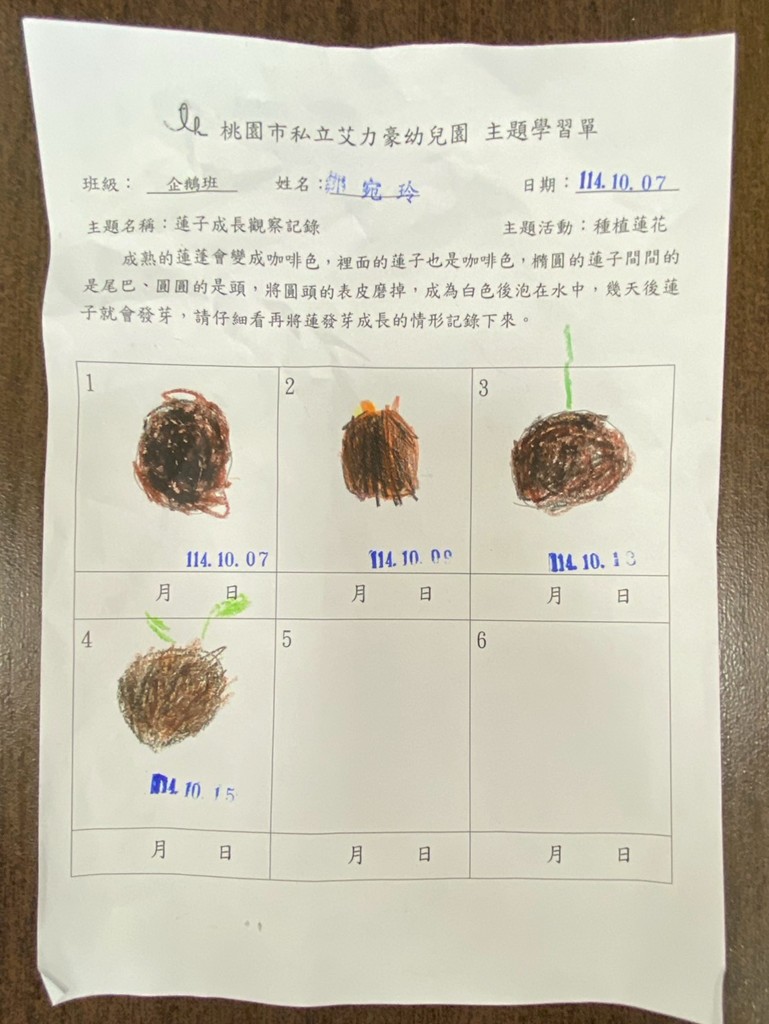 桃園市私立艾力豪幼兒園 主題學習單
班級： 企鵝班 姓名： 宛玲 日期：114.10.07
主題名稱：蓮子成長觀察記錄 主題活動：種植蓮花
成熟的蓮蓬會變成咖啡色，裡面的蓮子也是咖啡色，橢圓的蓮子間間的
是尾巴、圓圓的是頭，將圓頭的表皮磨掉，成為白色後泡在水中，幾天後蓮
子就會發芽，請仔細看再將蓮發芽成長的情形記錄下來。
1 2 3
114.10.07 114.10.09 114.10.13
月 日 月 日 月 日
4 5 6
114.10.15
月 日 月 日 月 日